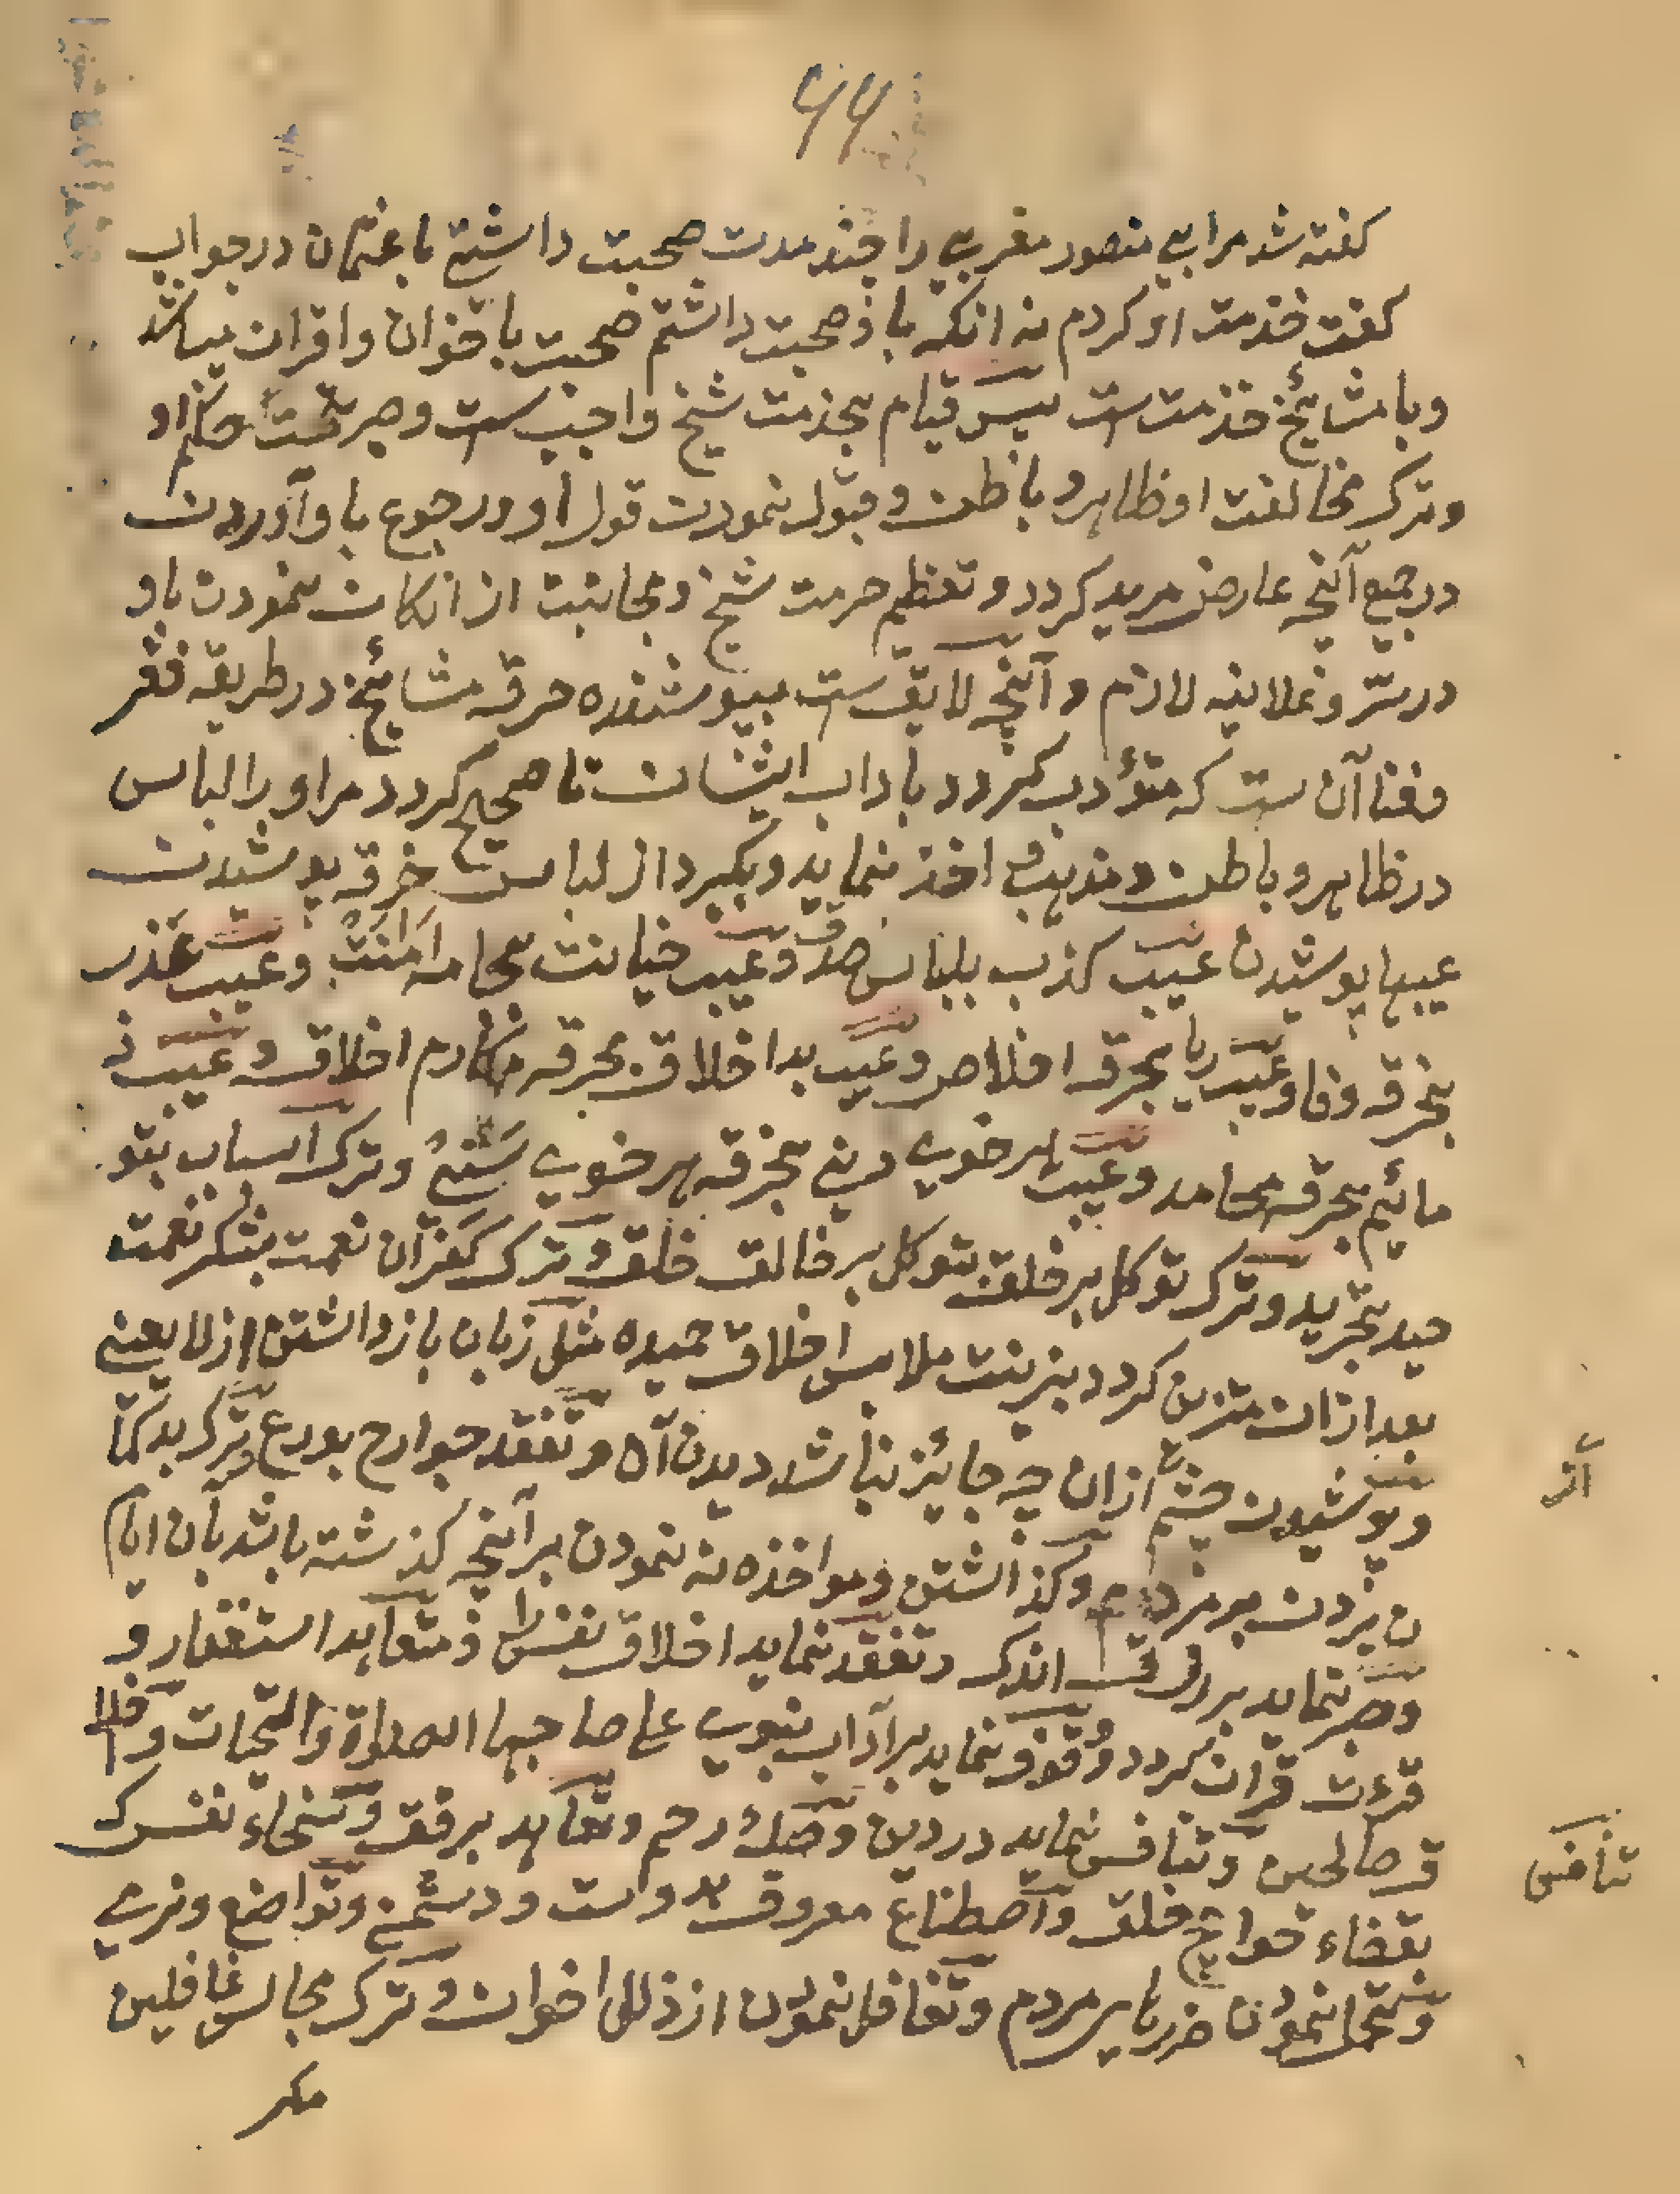 ۶۶
کفته شد مرابی منصور مغربی را چند مدت صحبت داشتی با عثمان در جواب
کفت خذمت او کردم نه انکه باو صحبت داشتم صحبت باخوان و اقران میباشد
وبا مشایٔخ خذمت ست پس قیام بخذمت شیخ واجب ست وصبر تحت حکم او
وترک مخالفت او ظاهر و باطن و قبول نمودن قول او و رجوع باو آوردن
در جمیع آنچه عارض مرید کردد و تعظیم حرمت شیخ و مجانبت از انکان نمودن باو
در سر و علانیه لازم و آنچه لایق ست بپوشنده خرقه مشایٔخ در طریقه فقر
وفنا آن ست که متؤدب کردد باداب ایشان تا صحیح کردد مر او را لباس
در ظاهر و باطن و مذهب اخذ نماید و بکیرد از لباس خرقه پوشیدن
عیبها پوشیدن عیب کذب بلباس صدق وعیب خیانت بجامه امانت وعیب عذر
بخرقه وفا وعیب ریا بخرقه اخلاص وعیب بد اخلاق بخرقه مکارم اخلاق وعیب ذ
مائیم بخرقه محامد وعیب هر خوی دنی بخرقه هر خوی سنی وترک اسباب بتو
حید تجرید وترک توکل بر خلق بتوکل بر خالق خلق وترک کفران نعمت بشکر نعمت
بعد ازان متزین کردد بزینت ملابس اخلاق حمیده مثل زبان باز داشتن از لا یعنی
وپوشیدن چشم ازان چه جایٔز نباشد دیدن آن وتفقد جوارح بورع وترک بدکما
ن بردن بر مردم وکذاشتن ومواخذه نه نمودن بر آنچه کذشته باشد بآن ایام
وصبر نماید بر رزق اندک وتفقد نماید اخلاق نفس را ومتعاهد استغفار و
قرءت قران کردد ووقوف نماید بر آداب نبوی علی صاحبها الصلوة والتحیات و اخلا
ق صالحین وتنافس نماید در دین وصلهٔ رحم وتعاهد برفق وسخاء نفس ک
بقضاء حوایٔج خلق واصطناع معروف بدوست ودشمنی وتواضع ونرمی
وتحمل نمودن ضررهای مردم وتغافل نمودن از ذلل اخوان وترک مجالس غافلین
مکر
آن
تنافس